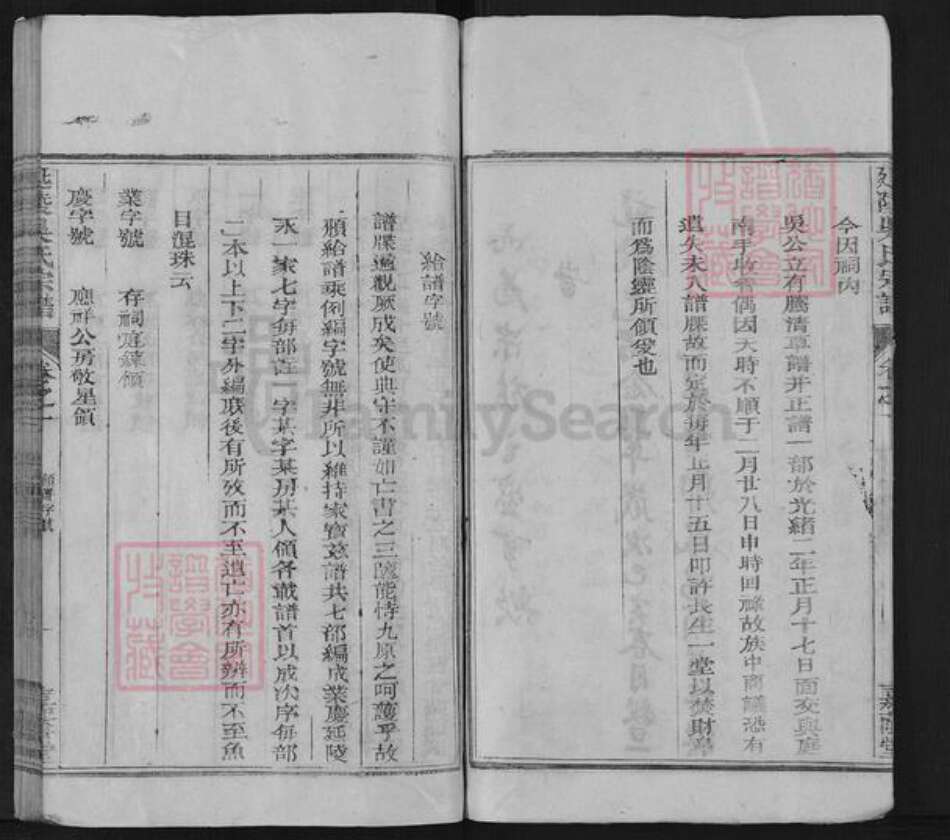 延陵吳氏宗譜
卷之一
今因祠內
吳公立有騰清草譜并正譜一部於光緒二年正月十七日面交與庭
南手收管偶因天時不順于二月廿八日申時回祿故族中商議恐有
遺失未入譜牒故而定於每年正月十五日叩許長生一堂以焚財帛
而為陰靈所領受也
給譜字號
譜牒週視厥成矣使典守不謹如亡書之三篋能恃九原之呵護乎故
頒給譜乘例編字號無非所以維持家寶玆譜共七部編成業慶延陵
永一家七字每部註一字某字某房某人領各載譜首以成次序每部
二本以上下二字外編取後有所攷而不至遺亡亦有所辨而不至魚
目混珠云
業字號 存祠庭鍊領
慶字號 應祥公房敬星領
延陵吳氏宗譜
卷之一
給譜字號
一
FamilySearch
譜學會
收藏
譜學會
收藏